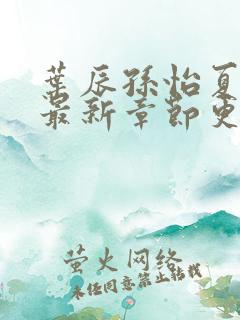 叶辰孙怡夏
最新章节更
萤火网络
未经同意禁止转载